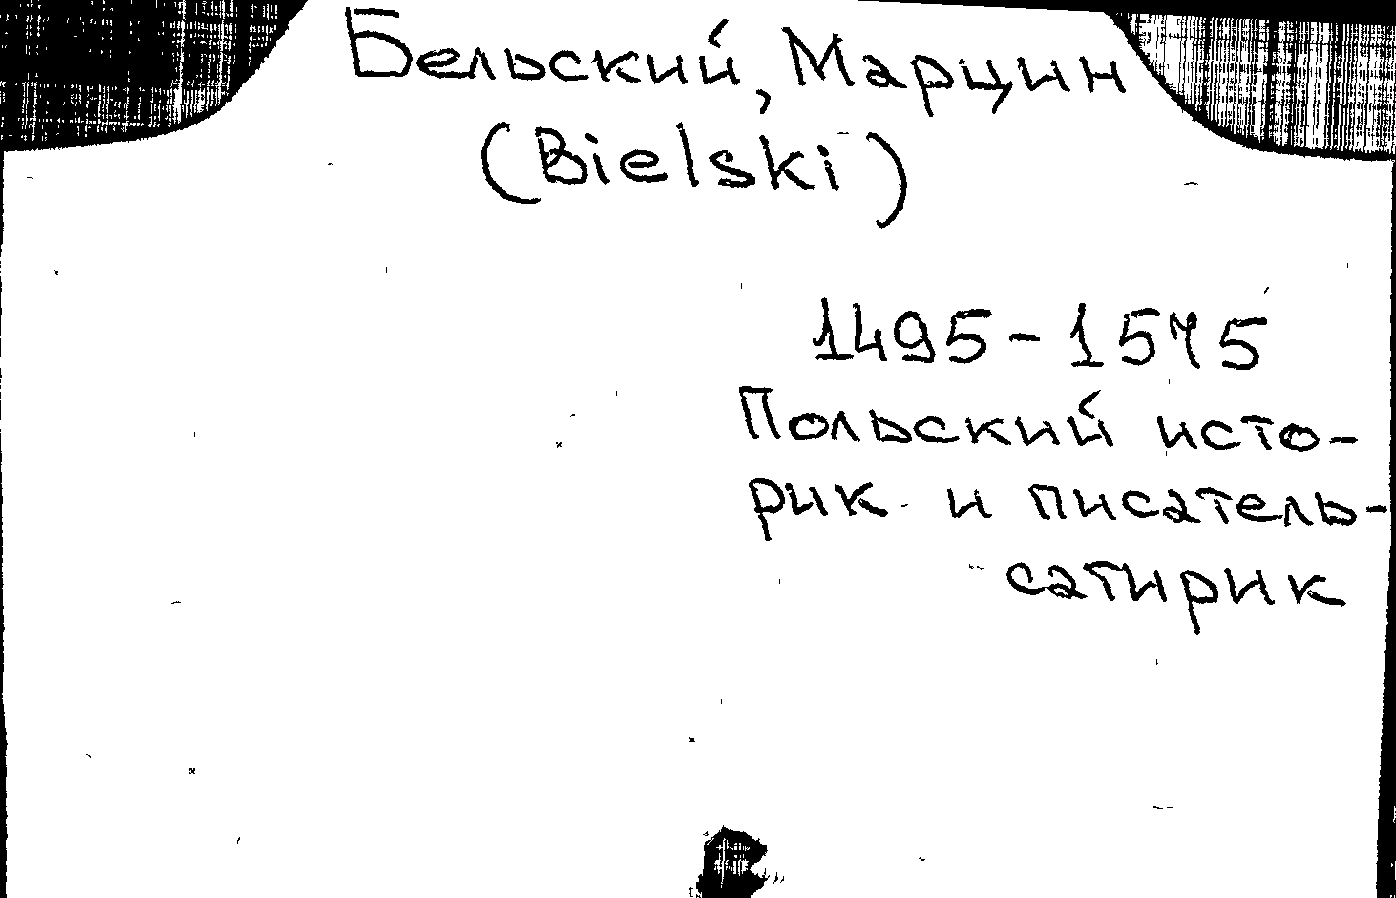 Бельский, Марцин
(Bielski)
1495-1575
Польский исто-
рик и писатель-
сатирик